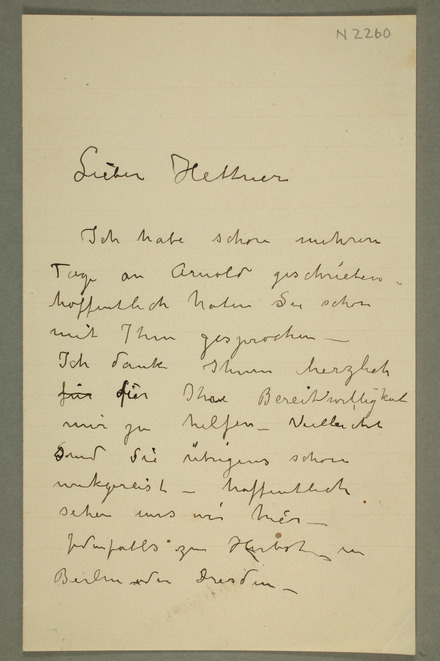 N 2260
Lieber Hettner
Ich habe schon mehrere
Tage an Arnold geschrieben –
hoffentlich haben Sie schon
mit Ihm gesprochen –
Ich danke Ihnen herzlich
für für Ihre Bereitwilligkeit
mir zu helfen – Vielleicht
Sind Sie übrigens schon
weitgereist – hoffentlich
sehen uns wir hier –
Jedenfalls zu Herbst in
Berlin oder Dresden –